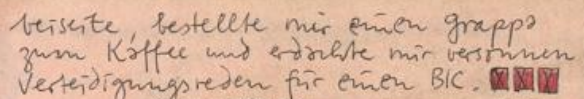 beiseite, bestellte mir einen Grappa
zum Kaffee und erdachte mir versonnen
Verteidigungsreden für einen BIC.